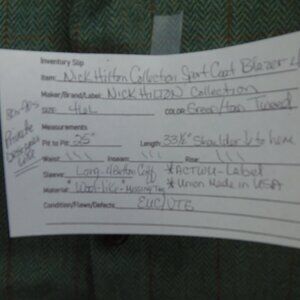 Inventory Slip
Item: Nick Hilton Collection Sport Coat Blazer
Maker/Brand/Label: NICK HILTON Collection
80s-90s
SIZE: 41L COLOR: Green/tan Tweed
Measurements
Pit to Pit: 25" Length: 33½" Shoulder to hem
Waist: Inseam: Rise:
Sleeve: Long-4 Button Cuff *ACTWU-Label
Material: "Wool-like" Missing Tag *Union Made in USA
Condition/Flaws/Defects: EUC/VTG
Private